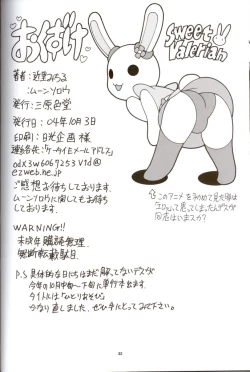 おくづけ
Sweet Valerian
著者：近里みちる
：ムーンソロウ
発行：三原色堂
発行日：04年10月3日
印刷：日光企画様
連絡先：ケータイメールアドレス
odx3w6067253v1d@
ezweb.ne.jp
ご感想お待ちしております。
ムーンソロウに関してもお待ち
しております。
WARNING!!
未成年購読無理。
無断転載駄目。
P.S 具体的な日にちはまだ解ってないデスが
今年の10月中旬〜下旬に単行本出ます。
タイトルは「ひとりあそび」
今なり直しました、ぜひ手にとってみて下さい。
⇧このアニメを初めて見た際は
って思ってしまったんデスが
同志はいますか？